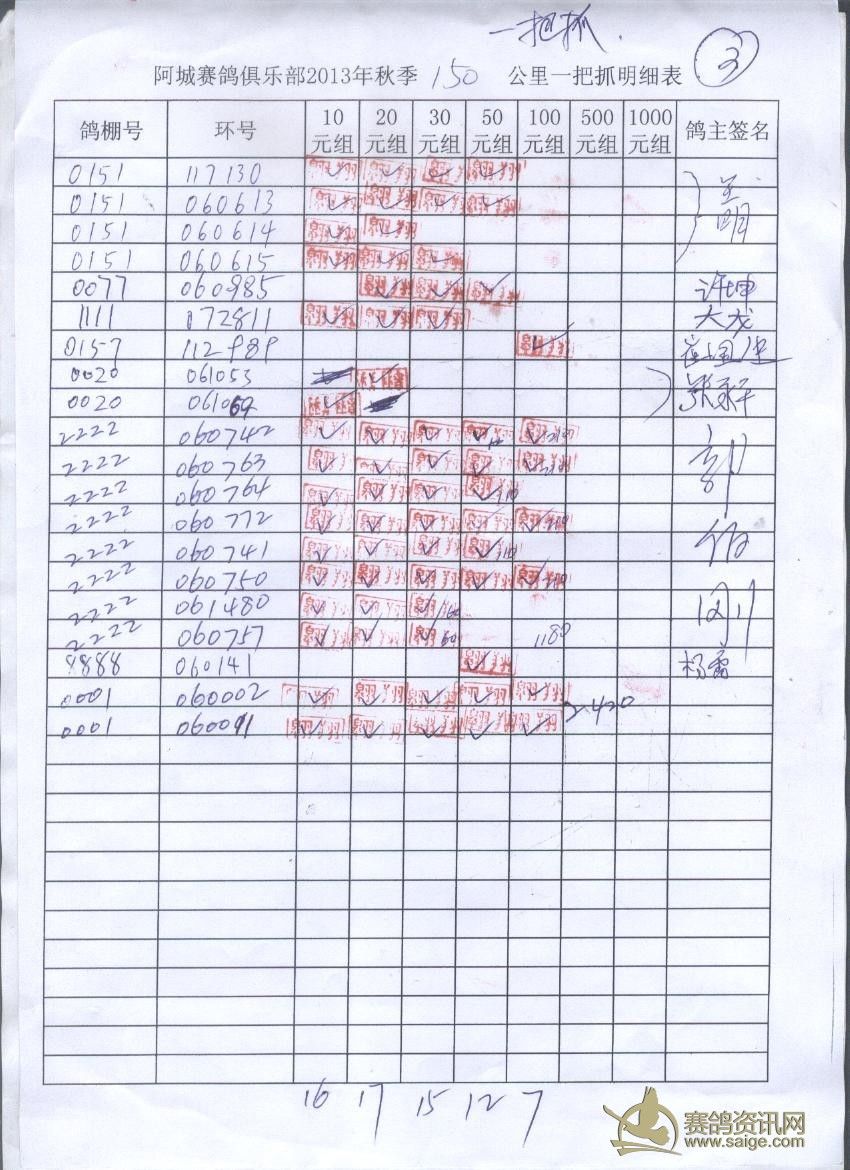 一把抓.
3
阿城赛鸽俱乐部2013年秋季 150 公里一把抓明细表
鸽棚号 环号 10元组 20元组 30元组 50元组 100元组 500元组 1000元组 鸽主签名
0151 117130 ✓ ✓ ✓ ✓
0151 060613 ✓ ✓ ✓ ✓
0151 060614 ✓ ✓
0151 060615 ✓ ✓ ✓
0077 060985 ✓ ✓ ✓ 许坤
1111 172811 ✓ ✓ ✓ 大龙
0157 112989 ✓
0020 061053
0020 061069
2222 060742 ✓ ✓ ✓ ✓ ✓
2222 060763 ✓ ✓ ✓ ✓
2222 060764 ✓ ✓ ✓ ✓ 110
2222 060772 ✓ ✓ ✓ ✓ ✓
2222 060741 ✓ ✓ ✓ ✓ 110
2222 060750 ✓ ✓ ✓ ✓ ✓
2222 061480 ✓ ✓ ✓
2222 060757 ✓ ✓ ✓ 60 1180
8888 060141 ✓ 杨露
0001 060002 ✓ ✓ ✓ ✓ ✓
420
0001 060091 ✓ ✓ ✓ ✓ ✓
16 17 15 12 7
赛鸽资讯网
www.saige.com